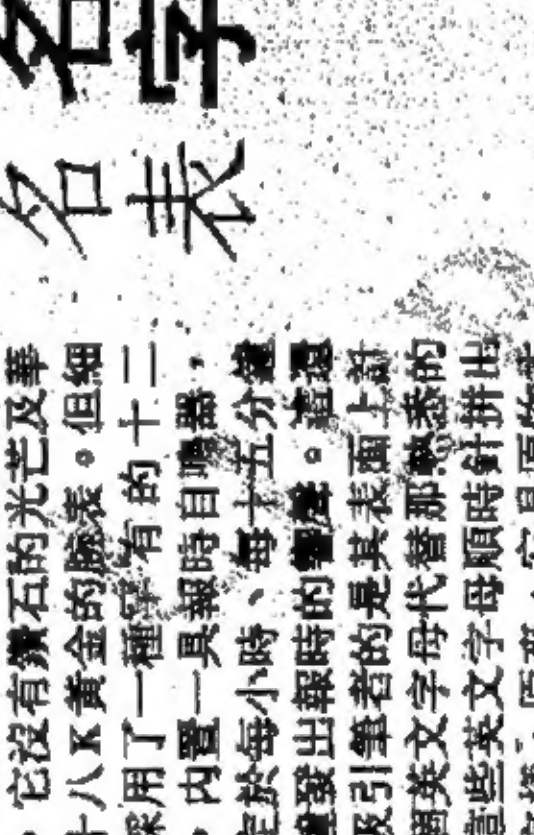 名字
名表
，它沒有鑽石的光芒及華
十八K黃金的腕表。但細
採用了一種罕有的十二
，內置一具報時自鳴器，
於每小時、每十五分鐘
發出報時的
吸引筆者的是其表面上計
英文字母代替那熟悉的
這些英文字母順時針拼出